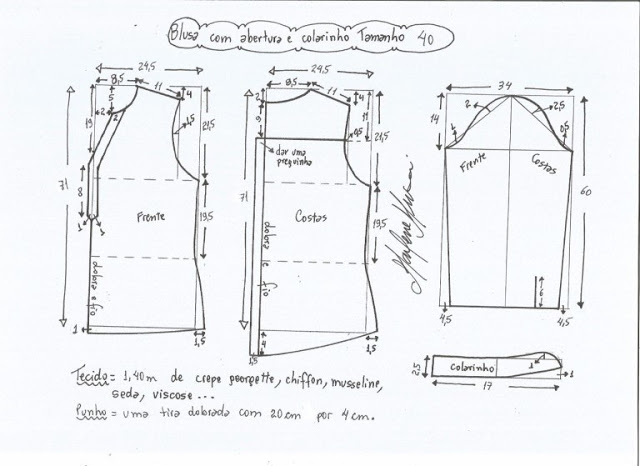 Blusa com abertura e colarinho Tamanho 40
24,5
8,5
11
4
5
2
2
19
1,5
21,5
71
8
Frente
19,5
1
1
dobra e fio
1
1,5
24,5
8,5
11
2
4
9
11
0,5
21,5
dar uma preguinha
71
Costas
19,5
dobra e fio
1,5
4
1,5
34
14
2
2,5
1
0,5
Frente
Costas
60
6
4,5
4,5
2,5
colarinho
1
1
1
17
Tecido = 1,40m de crepe georgette, chiffon, musseline,
seda, viscose...
Punho = uma tira dobrada com 20cm por 4cm.